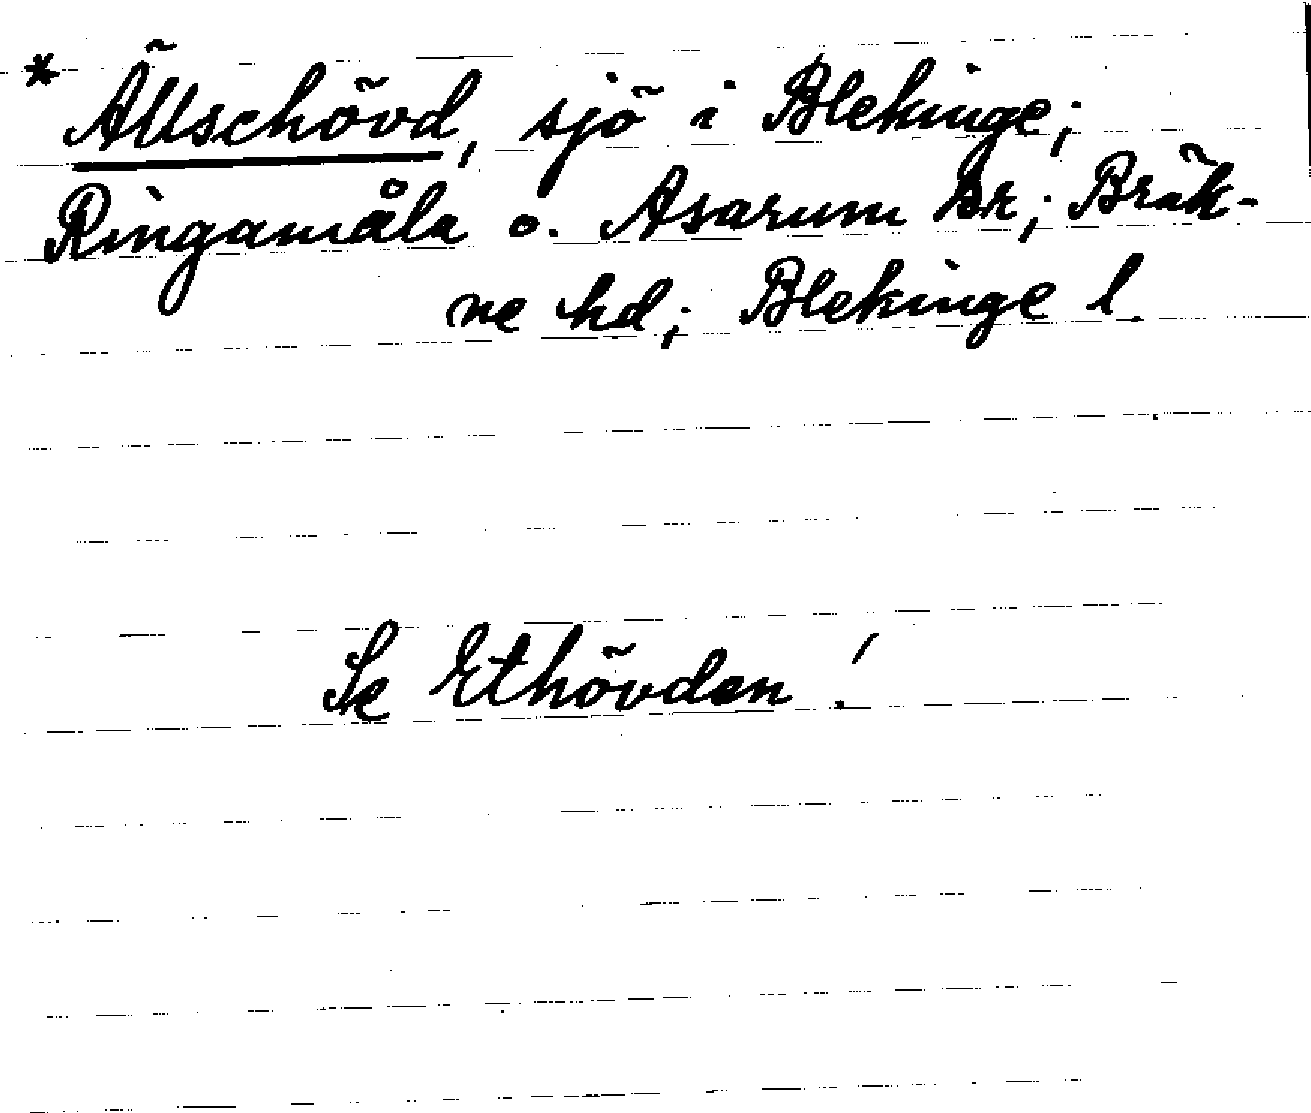 * Ällschövd, sjö i Blekinge;
Ringamåla o. Asarum sr; Bräk-
ne hd; Blekinge l.
Se Ethövden!